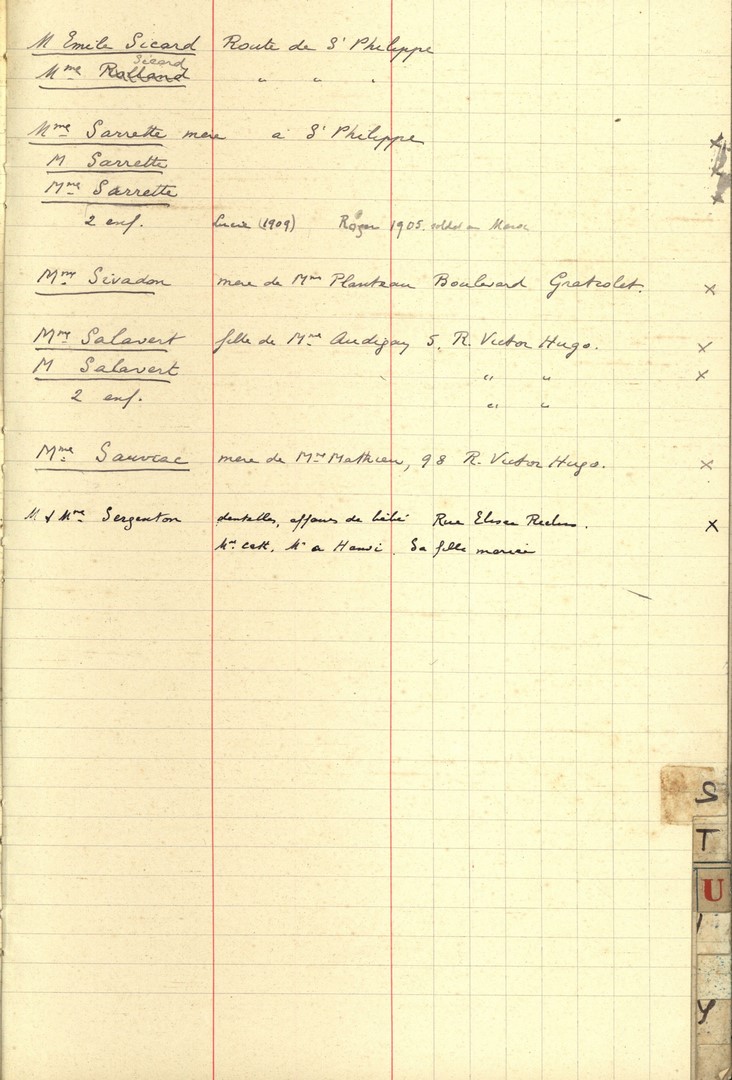 M Emile Sicard Route de St Philippe
Sicard
Mme Rolland " " "
Mme Sarrette mere a St Philippe
M Sarrette
Mme Sarrette
2 enf. Lucie (1909) Roger 1905. soldat au Maroc
Mme Sivadon mere de Mme Planteau Boulevard Gratiolet. x
Mme Salavert fille de Mme Audigay 5, R. Victor Hugo. x
M Salavert " " x
2 enf. " "
Mme Sauviac mere de Mme Mathieu, 98 R. Victor Hugo. x
M & Mme Sergenton dentelles, affaires de bébé Rue Elisee Reclus. x
Mme cath. Mr a Sa fille mariée
S
T
U
Y